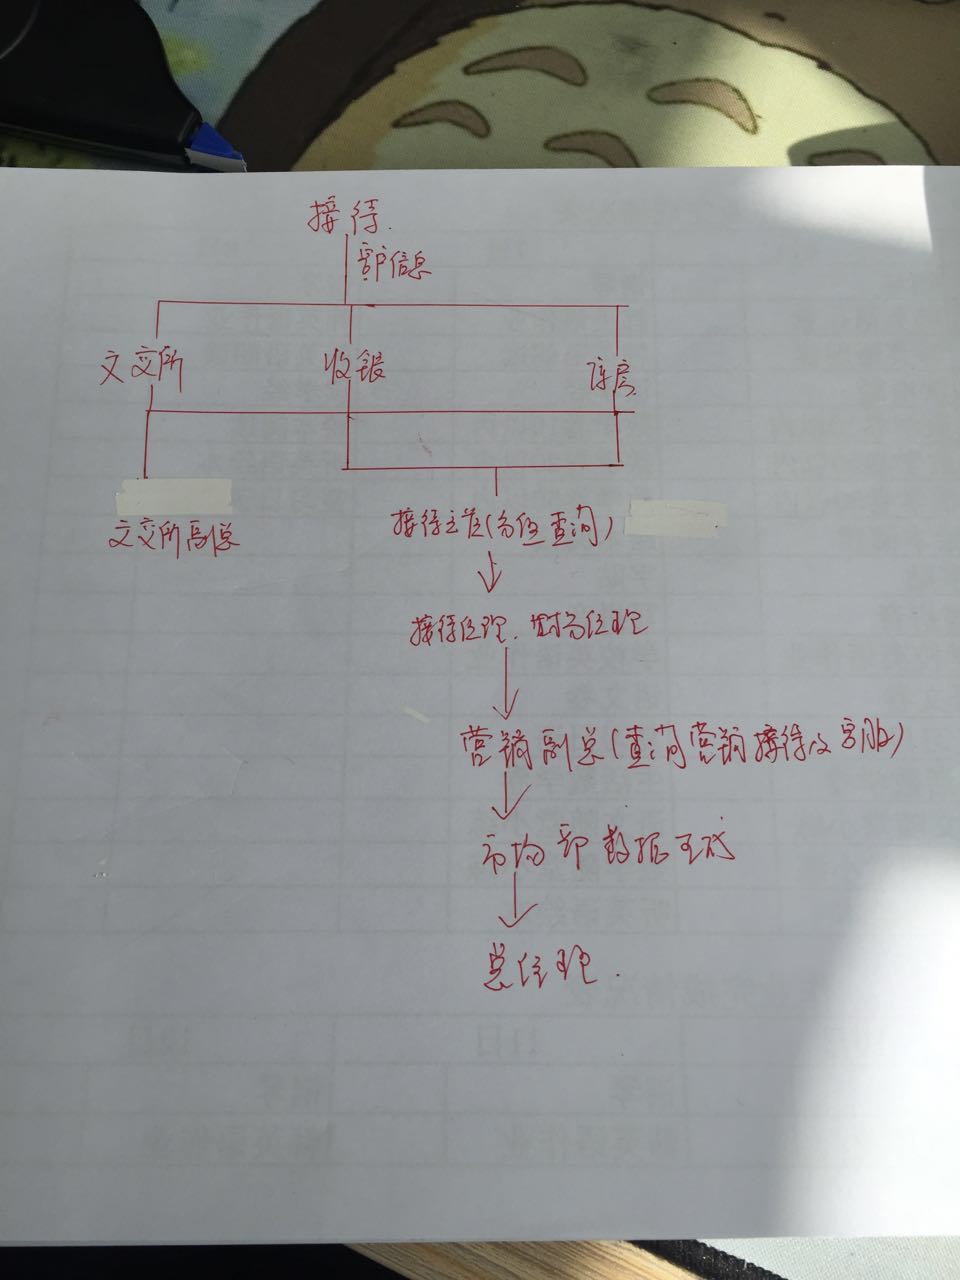 接待
客户信息
文交所 收银 库房
文交所副总
接待主管(查询)
接待经理. 财务经理
营销副总(查询营销接待及客服)
市场部数据生成
总经理.